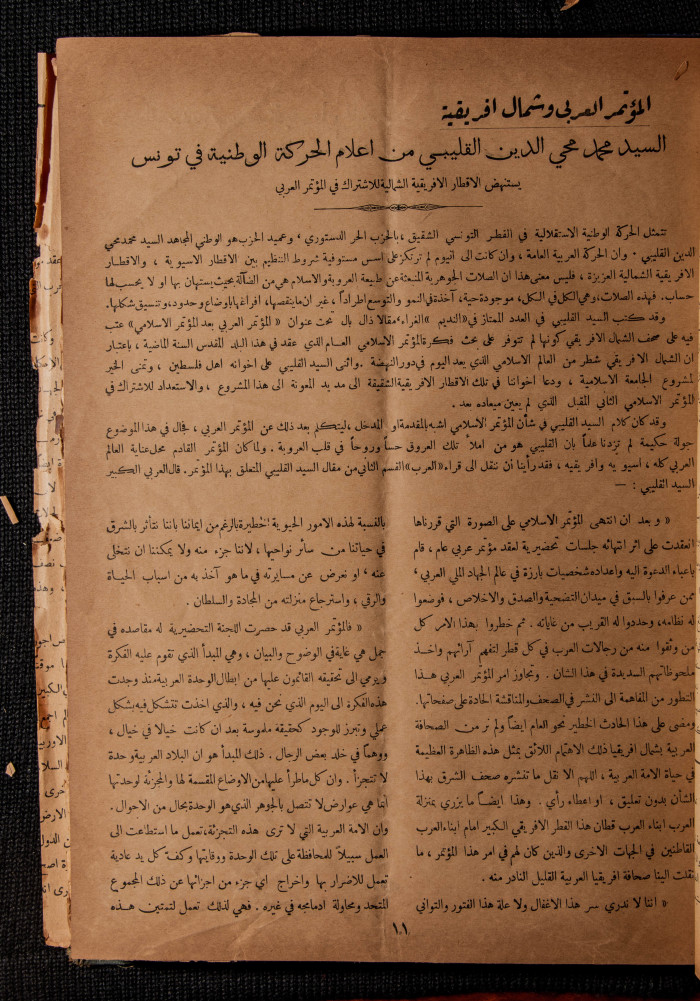 المؤتمر العربي وشمال افريقية
السيد محمد محي الدين القليبي من اعلام الحركة الوطنية في تونس
يستنهض الاقطار الافريقية الشمالية للاشتراك في المؤتمر العربي
تتمثل الحركة الوطنية الاستقلالية في القطر التونسي الشقيق ، بالحزب الحر الدستوري ، وعميد الحزب هو الوطني المجاهد السيد محمد محي
الدين القليبي . وان الحركة العربية العامة ، وان كانت الى اليوم لم ترتكز على اسس مستوفية شروط التنظيم بين الاقطار الاسيوية ، والاقطار
الافريقية الشمالية العزيزة ، فليس معنى هذا ان الصلات الجوهرية المنبعثة عن طبيعة العروبة والاسلام هي من الضآلة بحيث يستهان بها او لا يحسب لها
حساب . فهذه الصلات ، وهي الكل في الكل ، موجودة حية ، آخذة في النمو والتوسع اطراداً ، غير ان ما ينقصها ، افراغها باوضاع وحدود ، وتنسيق شكلها .
وقد كتب السيد القليبي في العدد الممتاز في «النديم» الغراء ، مقالا ذال بال تحت عنوان « المؤتمر العربي بعد المؤتمر الاسلامي » عتب
فيه على صحف الشمال الافريقي كونها لم تتوفر على بحث فكرة المؤتمر الاسلامي العام الذي عقد في هذا البلد المقدس السنة الماضية ، باعتبار
ان الشمال الافريقي شطر من العالم الاسلامي الذي بعد اليوم في دور النهضة . واثنى السيد القليبي على اخوانه اهل فلسطين ، وتمنى الخير
لمشروع الجامعة الاسلامية ، ودعا اخواننا في تلك الاقطار الافريقية الشقيقة الى مد يد المعونة الى هذا المشروع ، والاستعداد للاشتراك في
المؤتمر الاسلامي الثاني المقبل الذي لم يعين ميعاده بعد .
وقد كان كلام السيد القليبي في شأن المؤتمر الاسلامي اشبه بالمقدمة او المدخل ، ليتكلم بعد ذلك عن المؤتمر العربي ، فجال في هذا الموضوع
جولة حكيمة لم تزدنا علماً بان القليبي هو من املأ تلك العروق حساً وروحاً في قلب العروبة . ولما كان المؤتمر القادم محل عناية العالم
العربي كله ، اسيويه وافريقيه ، فقد رأينا أن ننقل الى قراء «العرب» القسم الثاني من مقال السيد القليبي المتعلق بهذا المؤتمر . قال العربي الكبير
السيد القليبي : —
« و بعد ان انتهى المؤتمر الاسلامي على الصورة التي قررناها
انعقدت على اثر انتهائه جلسات تحضيرية لعقد مؤتمر عربي عام ، قام
باعباء الدعوة اليه واعداده شخصيات بارزة في عالم الجهاد الملي العربي ،
ممن عرفوا بالسبق في ميدان التضحية والصدق والاخلاص ، فوضعوا
له نظامه ، وحددوا له القريب من غاياته . ثم خطروا بهذا الامر كل
من وثقوا منه من رجالات العرب في كل قطر لتفهم آرائهم واخذ
ملحوظاتهم السديدة في هذا الشان . وتجاوز امر المؤتمر العربي هذا
التطور من المفاهمة الى النشر في الصحف والمناقشة الحادة على صفحاتها .
ومضى على هذا الحادث الخطير نحو العام ايضاً ولم نر من الصحافة
العربية بشمال افريقيا ذلك الاهتمام اللائق بمثل هذه الظاهرة العظيمة
في حياة الامة العربية ، اللهم الا نقل ما تنشره صحف الشرق بهذا
الشأن بدون تعليق ، او اعطاء رأي . وهذا ايضاً ما يزري بمنزلة
العرب ابناء العرب قطان هذا القطر الافريقي الكبير امام ابناء العرب
القاطنين في الجهات الاخرى والذين كان لهم في امر هذا المؤتمر ، ما
نقلت الينا صحافة افريقيا العربية القليل النادر منه .
« اننا لا ندري سر هذا الاغفال ولا علة هذا الفتور والتواني
بالنسبة لهذه الامور الحيوية الخطيرة بالرغم من ايماننا باننا نتأثر بالشرق
في حياتنا من سائر نواحيها ، لاننا جزء منه ولا يمكننا ان نتخلى
عنه ، او نعرض عن مسايرته في ما هو آخذ به من اسباب الحياة
والرقي ، واسترجاع منزلته من المجادة والسلطان .
« فالمؤتمر العربي قد حصرت اللجنة التحضيرية له مقاصده في
جمل هي غاية في الوضوح والبيان ، وهي المبدأ الذي تقوم عليه الفكرة
ويرمي الى تحقيقه القائمون عليها من ابطال الوحدة العربية منذ وجدت
هذه الفكرة الى اليوم الذي نحن فيه ، والذي اخذت تتشكل فيه بشكل
عملي وتبرز للوجود كحقيقة ملموسة بعد ان كانت خيالا في خيال ،
ووهماً في خلد بعض الرجال . ذلك المبدأ هو ان البلاد العربية وحدة
لا تتجزأ . وان كل ما طرأ عليها من الاوضاع المقسمة لها والمجزئة لوحدتها
انما هي عوارض لا تتصل بالجوهر الذي هو الوحدة بحال من الاحوال .
وان الامة العربية التي لا ترى هذه التجزئة ، تعمل ما استطاعت الى
العمل سبيلاً للمحافظة على تلك الوحدة ووقايتها وكفة كل يد عادية
تعمل للاضرار بها واخراج اي جزء من اجزائها عن ذلك المجموع
المتحد ومحاولة ادماجه في غيره . فهي لذلك تعمل لتمتين هذه
١٠١